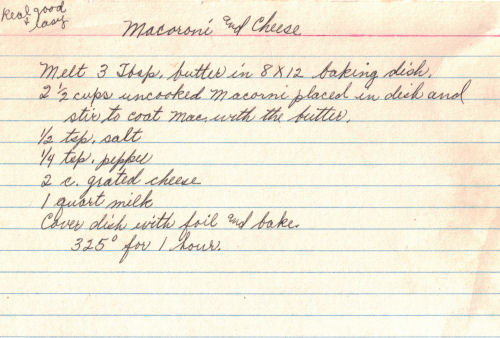 Real good
& easy
Macoroni and Cheese
Melt 3 Tbsp. butter in 8X12 baking dish.
2 1/2 cups uncooked Macorni placed in dish and
stir to coat Mac. with the butter.
1/2 tsp. salt
1/4 tsp. pepper
2 c. grated cheese
1 quart milk
Cover dish with foil and bake.
325° for 1 hour.